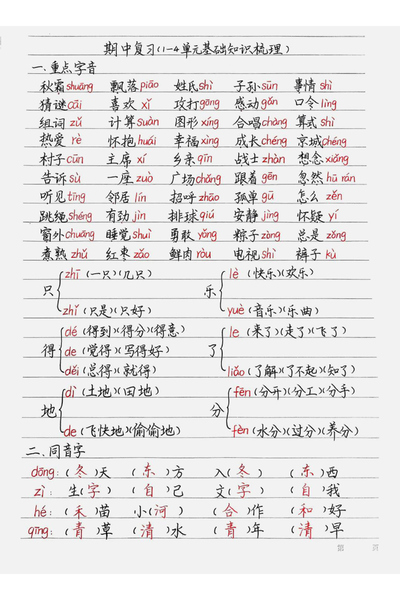 期中复习(1-4单元基础知识梳理)
一、重点字音
秋霜shuāng 飘落piāo 姓氏shì 子孙sūn 事情shì
猜谜cāi 喜欢xǐ 攻打gōng 感动gǎn 口令lìng
组词zǔ 计算suàn 图形xíng 合唱chàng 算式shì
热爱rè 怀抱huái 幸福xìng 成长chéng 京城chéng
村子cūn 主席xí 乡亲qīn 战士zhàn 想念xiǎng
告诉sù 一座zuò 广场chǎng 跟着gēn 忽然hū rán
听见tīng 邻居lín 招呼zhāo 孤单gū 怎么zěn
跳绳shéng 有劲jìn 排球qiú 安静jìng 怀疑yí
窗外chuāng 睡觉shuì 勇敢yǒng 粽子zòng 总是zǒng
煮熟zhǔ 红枣zǎo 鲜肉ròu 电视shì 裤子kù
只 zhī(一只)(几只) 乐 lè(快乐)(欢乐)
zhǐ(只是)(只好) yuè(音乐)(乐曲)
得 dé(得到)(得分)(得意) 了 le(来了)(走了)(飞了)
de(觉得)(写得好)
děi(总得)(就得) liǎo(了解)(了不起)(知了)
地 dì(土地)(田地) 分 fēn(分开)(分工)(分手)
de(飞快地)(偷偷地) fèn(水分)(过分)(养分)
二、同音字
dōng:(冬)天 (东)方 入(冬) (东)西
zì:生(字) (自)己 文(字) (自)我
hé:(禾)苗 小(河) (合)作 (和)好
qīng:(青)草 (清)水 (青)年 (清)早
第 页